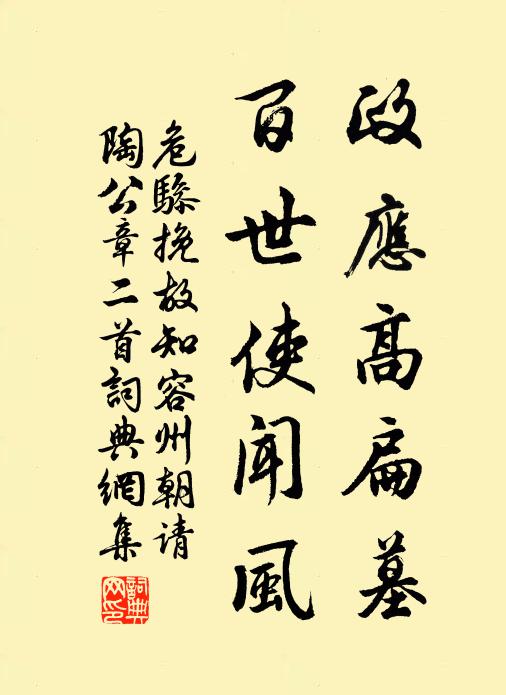 政應高扁墓
百世使聞風
危驂挽故知容州朝请
陶公章二首詞典網集